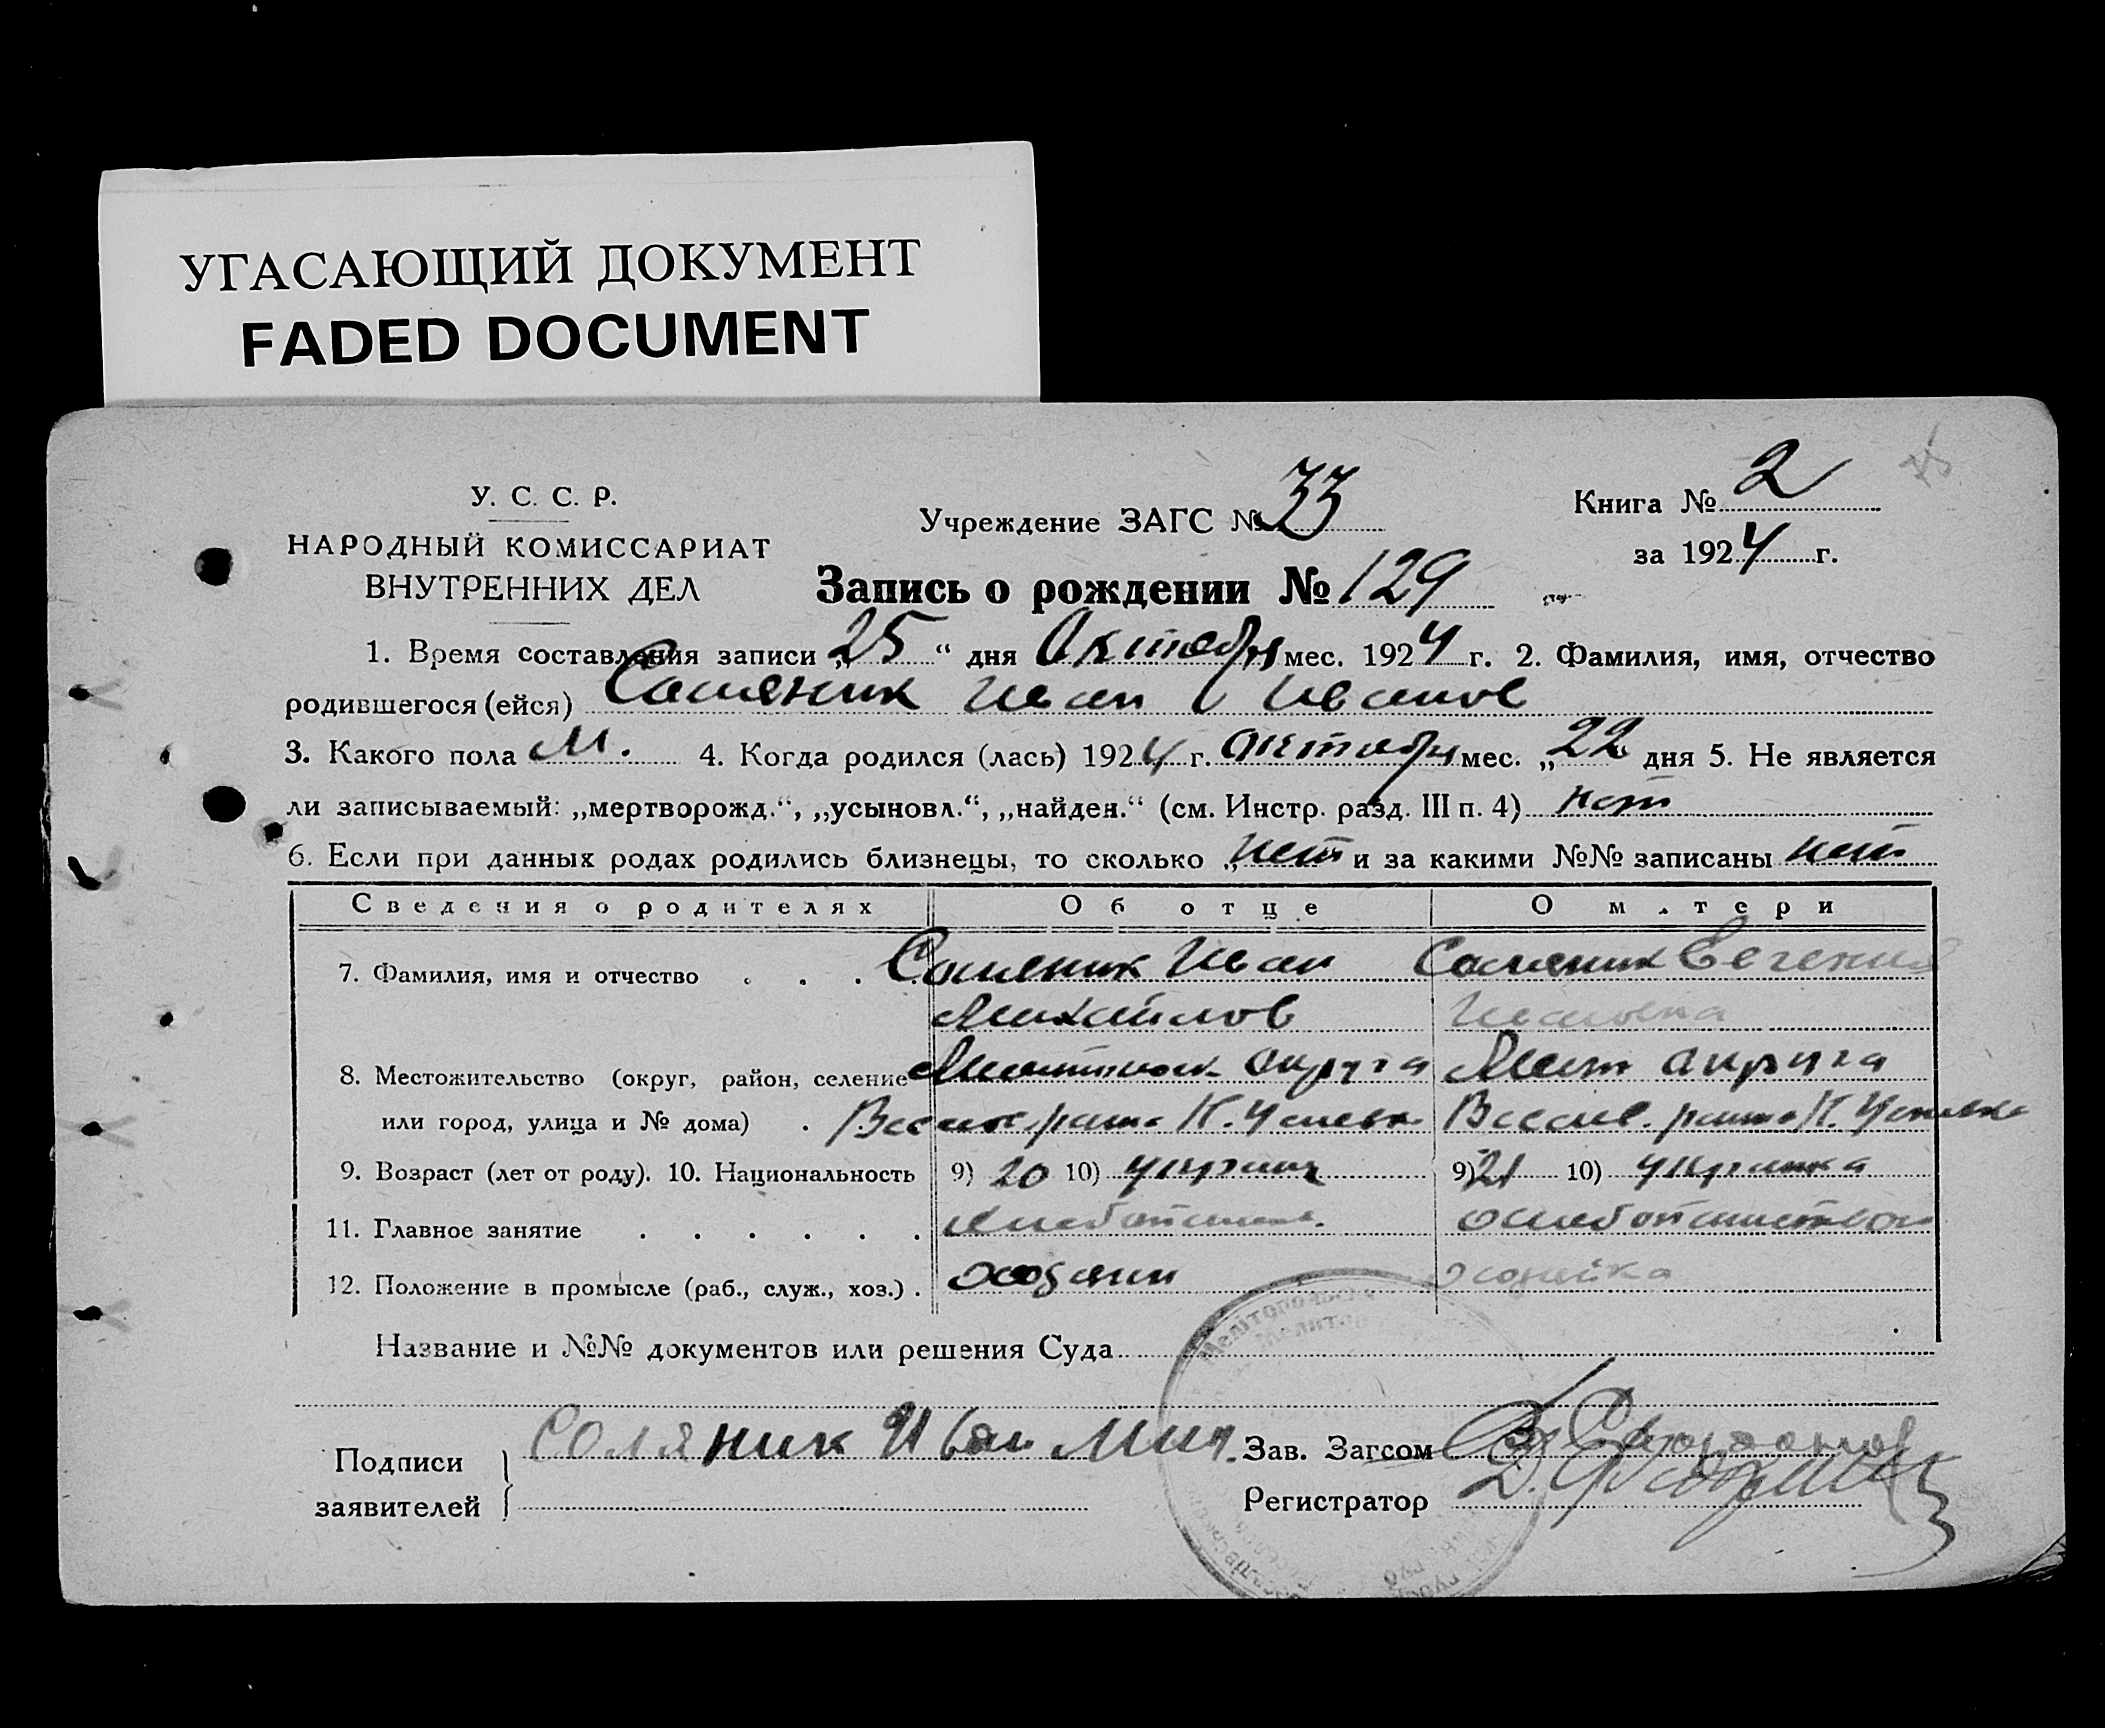 УГАСАЮЩИЙ ДОКУМЕНТ
FADED DOCUMENT
У. С. С. Р.
НАРОДНЫЙ КОМИССАРИАТ
ВНУТРЕННИХ ДЕЛ
Учреждение ЗАГС № 33
Книга № 2
за 1924 г.
Запись о рождении № 129
1. Время составления записи „25“ дня Октября мес. 1924 г. 2. Фамилия, имя, отчество
родившегося (ейся) Соляник Иван Иванов
3. Какого пола М. 4. Когда родился (лась) 1924 г. октября мес. „22 дня 5. Не является
ли записываемый: „мертворожд.“, „усыновл.“, „найден.“ (см. Инстр. разд. III п. 4) нет
6. Если при данных родах родились близнецы, то сколько „нет и за какими №№ записаны нет
Сведения о родителях Об отце О матери
7. Фамилия, имя и отчество . . . Соляник Иван Соляник Евгения
Михайлов Ивановна
8. Местожительство (округ, район, селение округа Мелит округа
или город, улица и № дома) .
9. Возраст (лет от роду). 10. Национальность 9) 20 10) украин 9) 21 10) украинка
11. Главное занятие . . . . . .
12. Положение в промысле (раб., служ., хоз.) . хозяин хозяйка
Название и №№ документов или решения Суда
Подписи
заявителей
Соляник Иван Мих.
Зав. Загсом
Регистратор